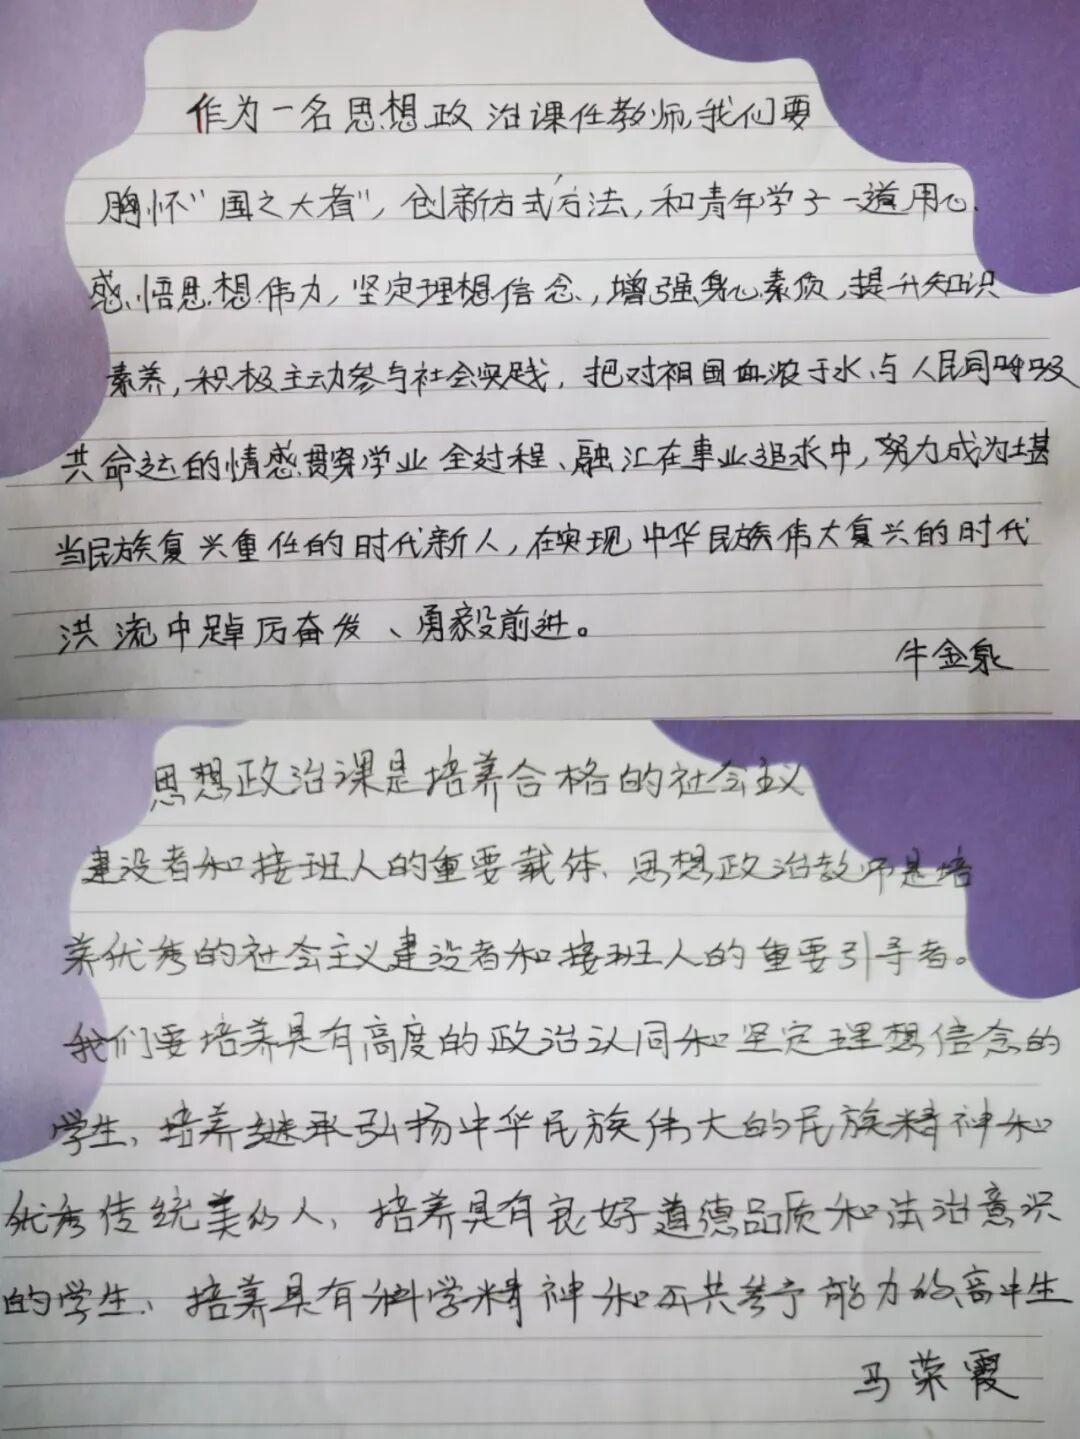 作为一名思想政治课任教师,我们要
胸怀“国之大者”,创新方式方法,和青年学子一道用心
感悟思想伟力,坚定理想信念,增强身心素质,提升知识
素养,积极主动参与社会实践,把对祖国血浓于水、与人民同呼吸
共命运的情感贯穿学业全过程、融汇在事业追求中,努力成为堪
当民族复兴重任的时代新人,在实现中华民族伟大复兴的时代
洪流中踔厉奋发、勇毅前进。
牛金泉
思想政治课是培养合格的社会主义
建设者和接班人的重要载体、思想政治教师是培
养优秀的社会主义建设者和接班人的重要引导者。
我们要培养具有高度的政治认同和坚定理想信念的
学生、培养继承弘扬中华民族伟大的民族精神和
优秀传统美的人、培养具有良好道德品质和法治意识
的学生、培养具有科学精神和公共参与能力的高中生
马荣霞